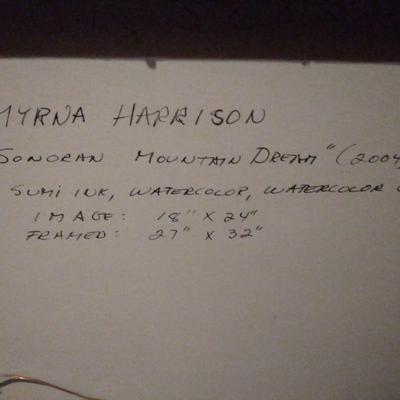 MYRNA HARRISON
SONORAN MOUNTAIN DREAM" (2004)
SUMI INK, WATERCOLOR, WATERCOLOR
IMAGE: 18" X 24"
FRAMED: 27" X 32"